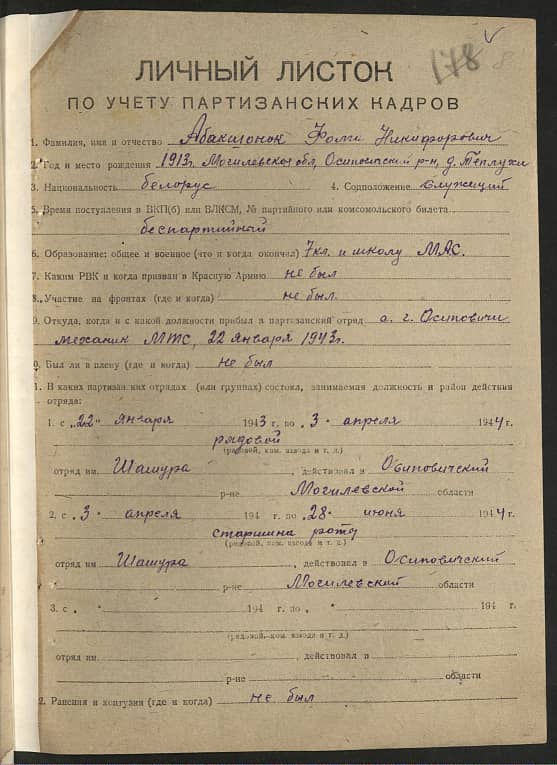 178
ЛИЧНЫЙ ЛИСТОК
ПО УЧЕТУ ПАРТИЗАНСКИХ КАДРОВ
1. Фамилия, имя и отчество Абакшонок Фома Никифорович
2. Год и место рождения 1913г. Могилевская обл, Осиповичский р-н, д. Теплухи
3. Национальность белорус 4. Соцположение служащий
5. Время поступления в ВКП(б) или ВЛКСМ, № партийного или комсомольского билета
беспартийный
6. Образование: общее и военное (что и когда окончил) 7 кл. и школу МАС.
7. Каким РВК и когда призван в Красную Армию не был
8. Участие на фронтах (где и когда) не был.
9. Откуда, когда и с какой должности прибыл в партизанский отряд г. Осиповичи
механик МТС, 22 января 1943г.
0. Был ли в плену (где и когда) не был
1. В каких партизан ких отрядах (или группах) состоял, занимаемая должность и район действия
отряда:
1. с „22" января 1943 г. по „3" апреля 1944 г.
рядовой
(рядовой, ком. взвода и т. д.)
отряд им. Шашура, действовал в Осиповичский
р-не Могилевской области
2. с „3" апреля 194 г. по „28" июня 1944 г.
старшина роты
(рядовой, ком. взвода и т. д.)
отряд им. Шашура, действовал в Осиповичский
р-не Могилевской области
3. с „ " 194 г. по „ " 194 г.
(рядовой, ком. взвода и т. д.)
отряд им. действовал в
р-не области
2. Ранения и контузия (где и когда) не был